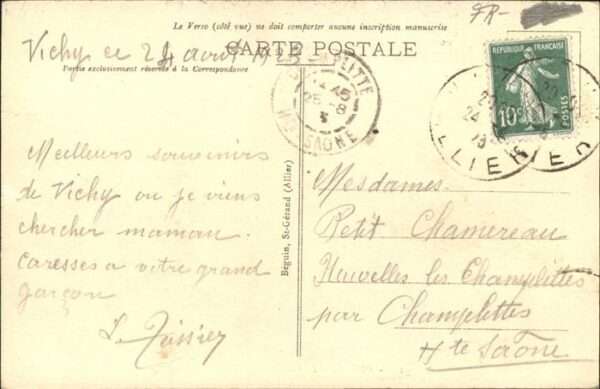 FR-
Le Verso (côté vue) ne doit comporter aucune inscription manuscrite
CARTE POSTALE
Partie exclusivement réservée à la Correspondance
Vichy ce 24 août 1923
Meilleurs souvenirs
de Vichy ou je viens
chercher maman.
Caresses a votre grand
garçon
Beguin, St-Gérand (Allier)
PLITTE
45
25-8
HTE SAONE
REPUBLIQUE FRANÇAISE
10c
POSTES
24
LLIER
Mesdames
Petit Chamereau
Neuvelles les Champlittes
par Champlittes
Hte Saône